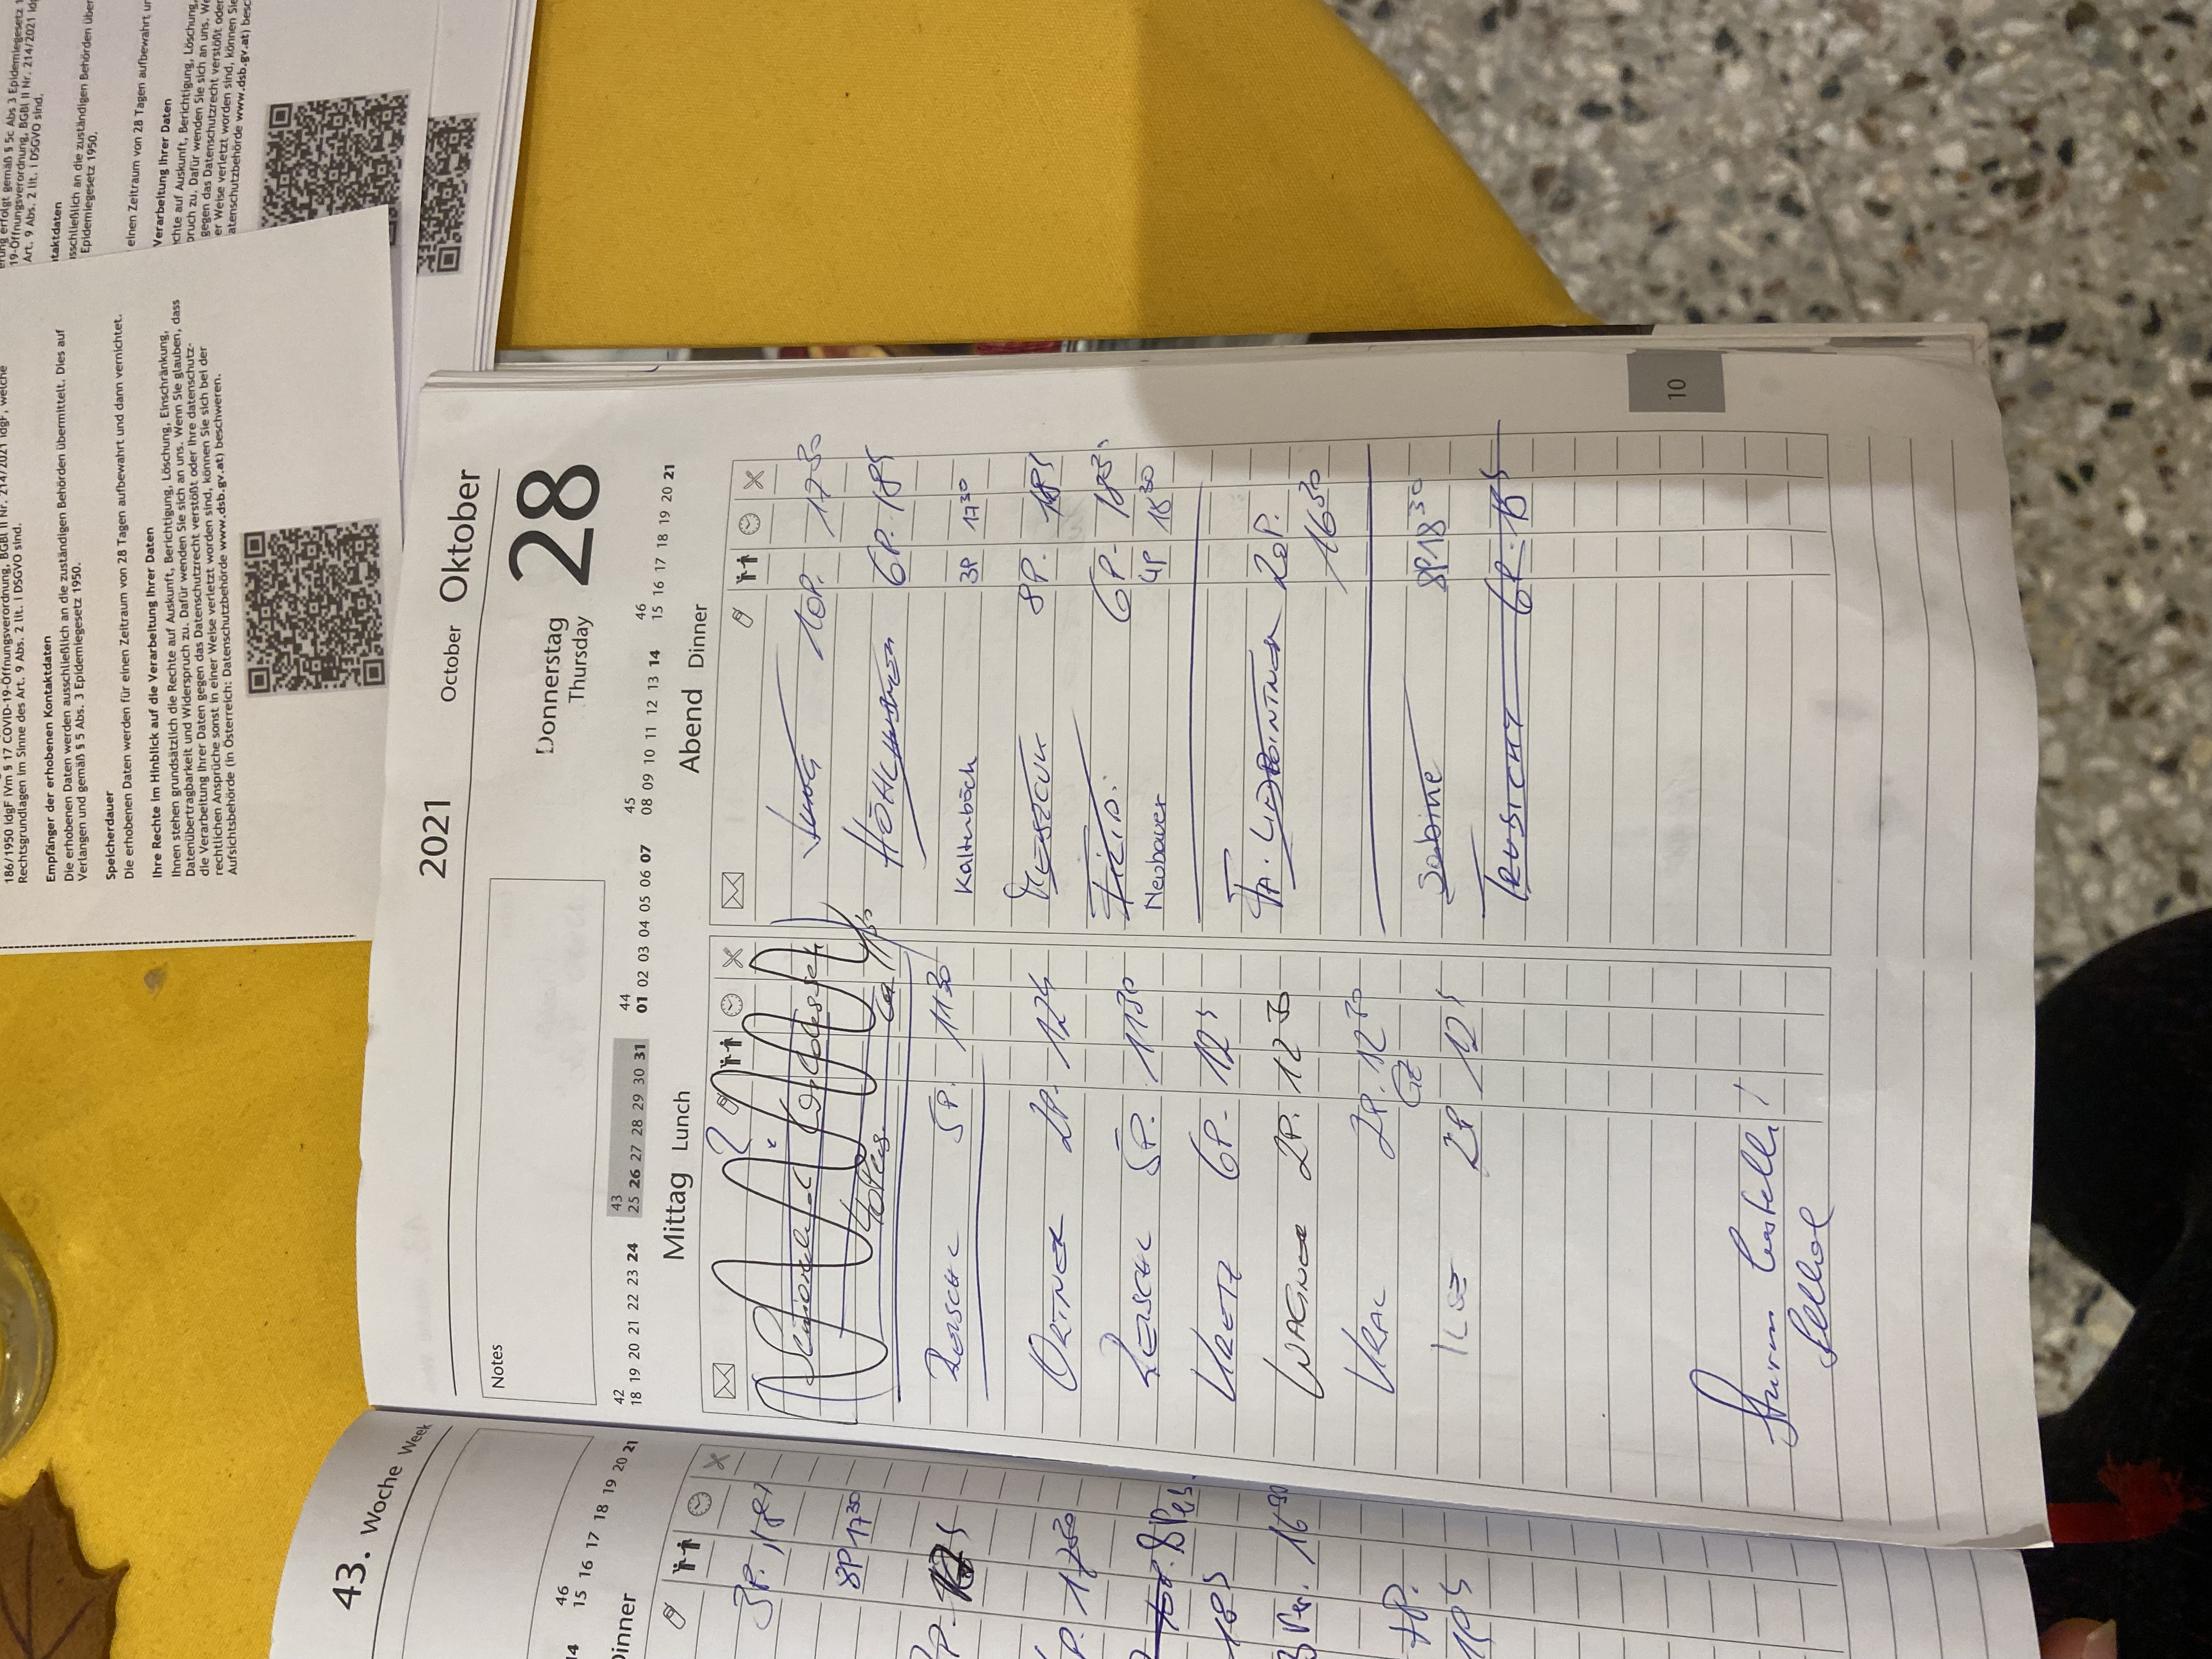 186/1950 idgF iVm § 17 COVID-19-Öffnungsverordnung, BGBl II Nr. 214/2021 idgF, welche
Rechtsgrundlagen im Sinne des Art. 9 Abs. 2 lit. i DSGVO sind.
Empfänger der erhobenen Kontaktdaten
Die erhobenen Daten werden ausschließlich an die zuständigen Behörden übermittelt. Dies auf
Verlangen und gemäß § 5 Abs. 3 Epidemiegesetz 1950.
Speicherdauer
Die erhobenen Daten werden für einen Zeitraum von 28 Tagen aufbewahrt und dann vernichtet.
Ihre Rechte im Hinblick auf die Verarbeitung Ihrer Daten
Ihnen stehen grundsätzlich die Rechte auf Auskunft, Berichtigung, Löschung, Einschränkung,
Datenübertragbarkeit und Widerspruch zu. Dafür wenden Sie sich an uns. Wenn Sie glauben, dass
die Verarbeitung Ihrer Daten gegen das Datenschutzrecht verstößt oder Ihre datenschutz-
rechtlichen Ansprüche sonst in einer Weise verletzt worden sind, können Sie sich bei der
Aufsichtsbehörde (in Österreich: Datenschutzbehörde www.dsb.gv.at) beschweren.
erfolgt gemäß § 5c Abs 3 Epidemiegesetz
19-Öffnungsverordnung, BGBl II Nr. 214/2021
Art. 9 Abs. 2 lit. i DSGVO sind.
taktdaten
sschließlich an die zuständigen Behörden über
Epidemiegesetz 1950.
einen Zeitraum von 28 Tagen aufbewahrt
Verarbeitung Ihrer Daten
chte auf Auskunft, Berichtigung, Löschung,
pruch zu. Dafür wenden Sie sich an uns.
gegen das Datenschutzrecht verstößt oder
er Weise verletzt worden sind, können Sie
atenschutzbehörde www.dsb.gv.at)
43. Woche Week
46
14 15 16 17 18 19 20 21
Dinner
3P.
8P 17 30
P. 17 30
8 Pers.
16 30
2021 October Oktober
Notes
Donnerstag 28
Thursday
42 43 44 45 46
18 19 20 21 22 23 24 25 26 27 28 29 30 31 01 02 03 04 05 06 07 08 09 10 11 12 13 14 15 16 17 18 19 20 21
Mittag Lunch
?
40 Pers. ca 11 30
5P. 11 30
ORTNER 2P.
5P. 11 30
KRETZ 6P-
WAGNER 2P. 12 30
KRAL 2P. 12 30
ILSE 2P
Sturm bestellt!
Abend Dinner
JUNG 10P. 17 30
6P.
Kaltenböck 3P 17 30
8P.
6P- 18 30
Neubauer 4P 18 30
FA. 20P.
16 30
Sabine 8P 18 30
6P.
10